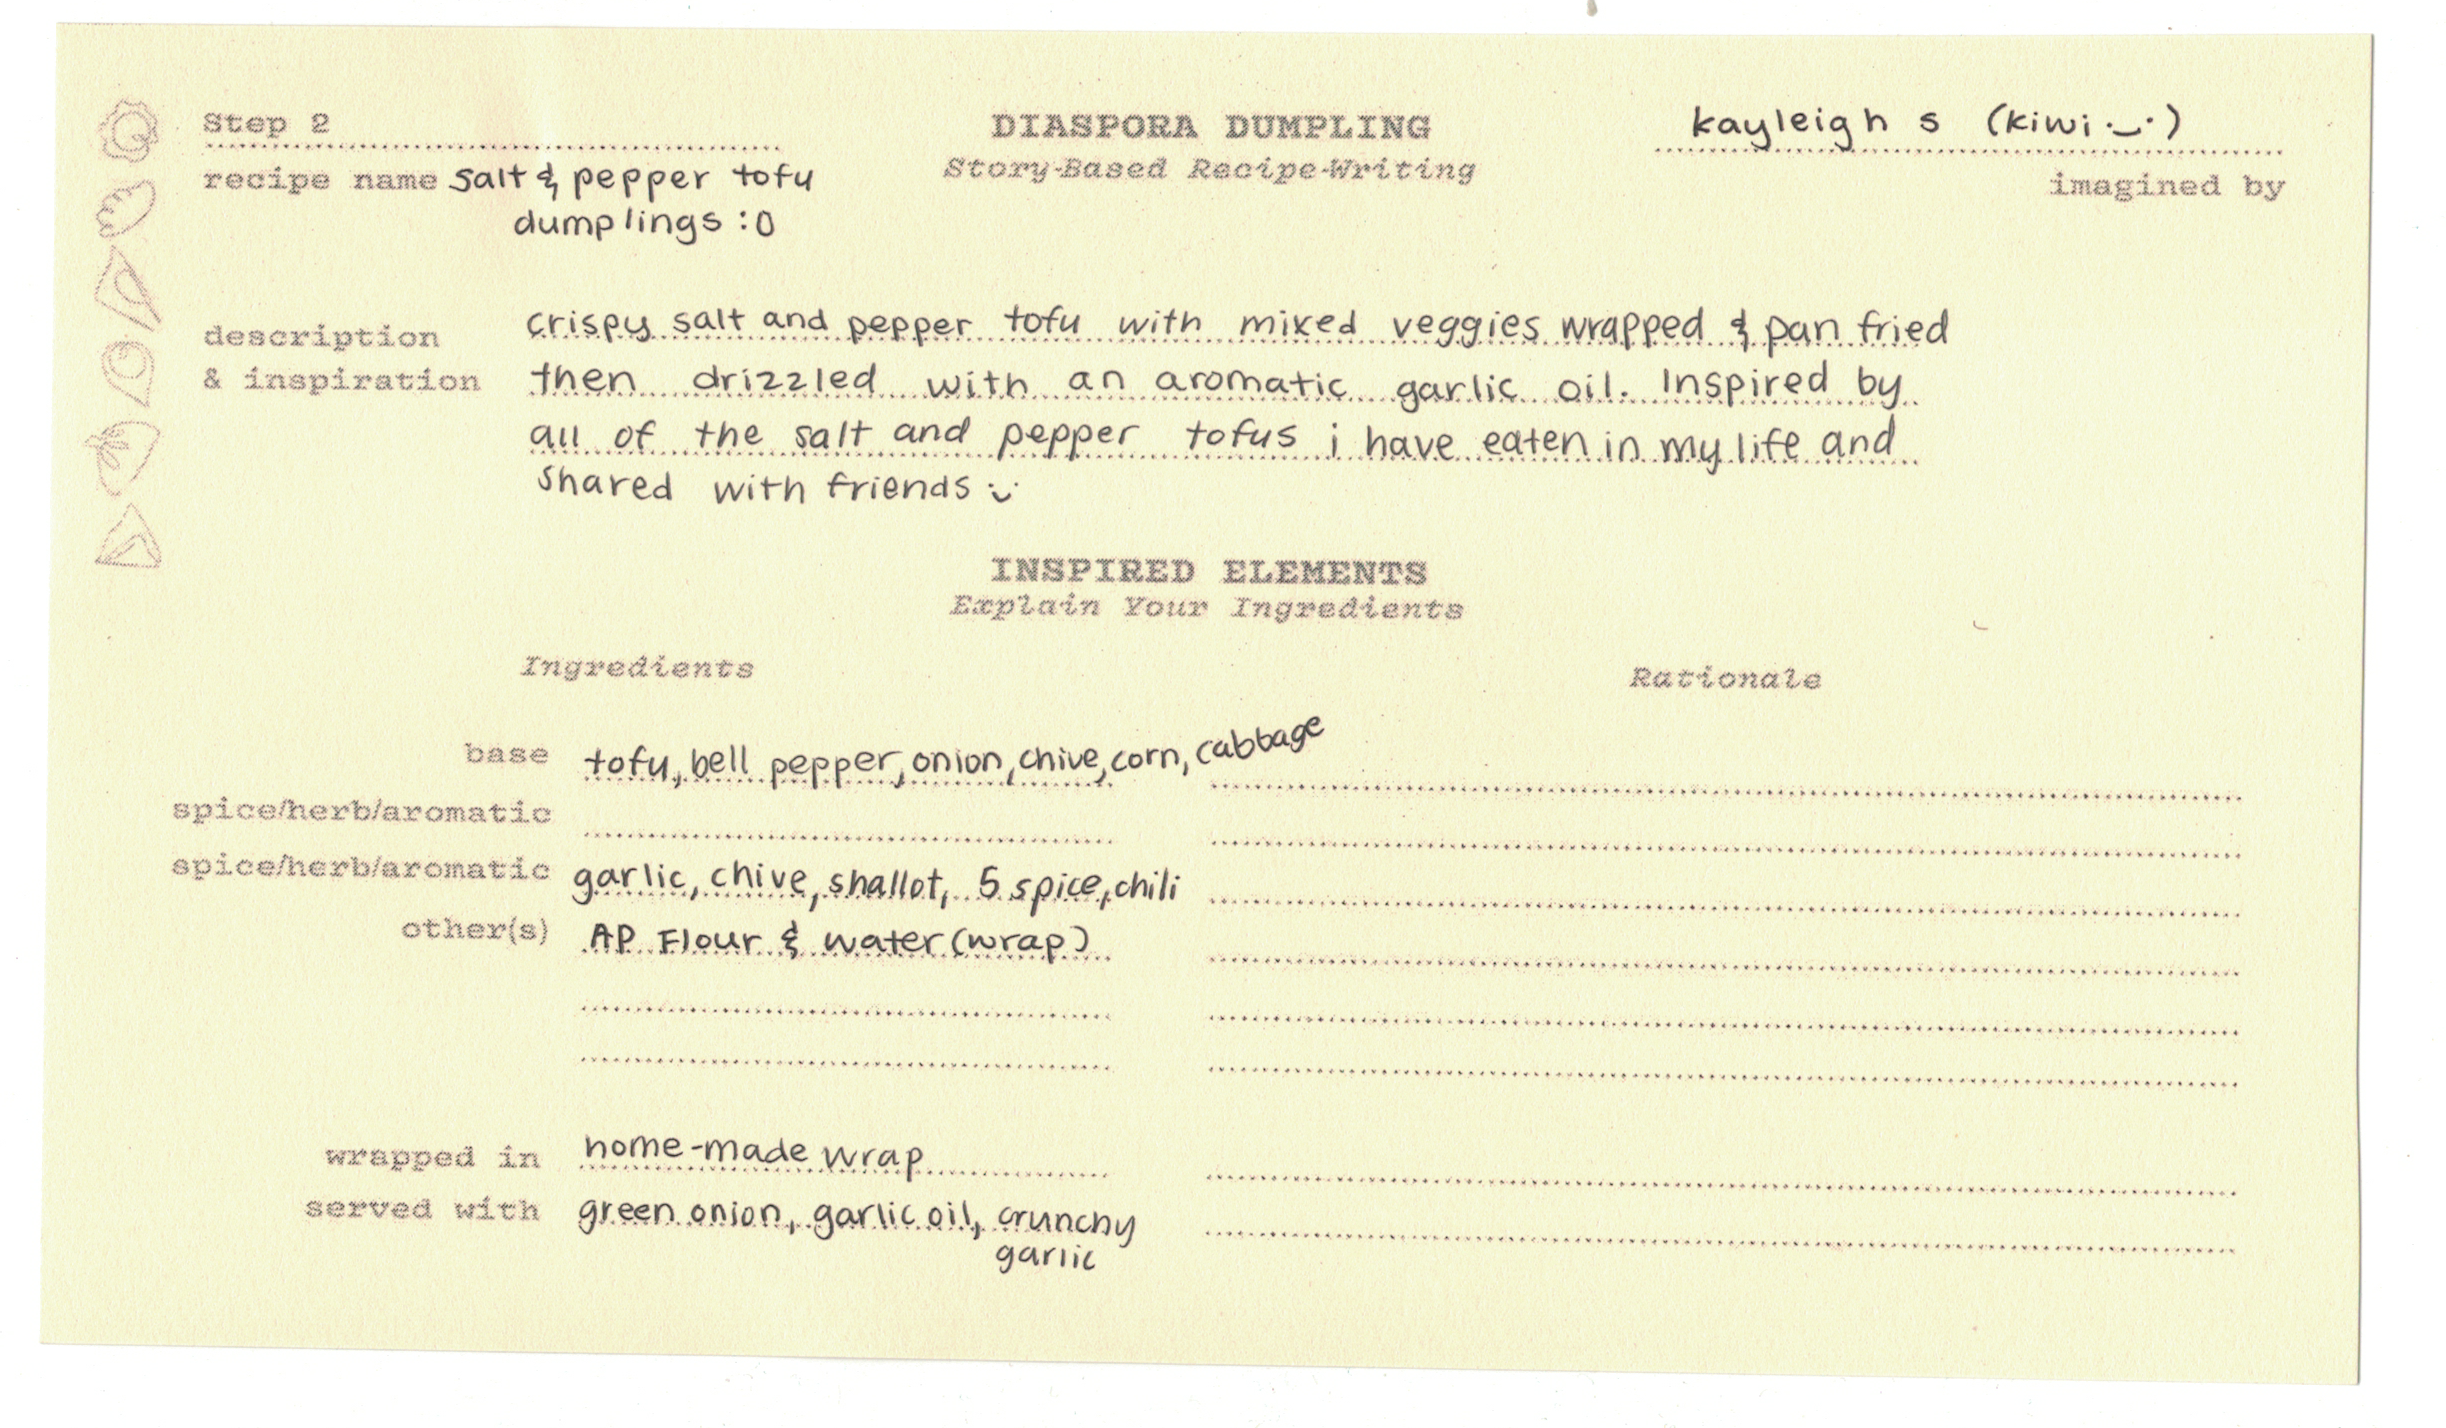 Step 2
DIASPORA DUMPLING
kayleigh s (kiwi :‿:)
recipe name salt & pepper tofu
Story-Based Recipe-Writing
imagined by
dumplings :0
description
& inspiration
crispy salt and pepper tofu with mixed veggies wrapped & pan fried
then drizzled with an aromatic garlic oil. Inspired by
all of the salt and pepper tofus i have eaten in my life and
shared with friends :‿:
INSPIRED ELEMENTS
Explain Your Ingredients
Ingredients
Rationale
base tofu, bell pepper, onion, chive, corn, cabbage
spice/herb/aromatic
spice/herb/aromatic garlic, chive, shallot, 5 spice, chili
other(s) AP Flour & water (wrap)
wrapped in home-made wrap
served with green onion, garlic oil, crunchy
garlic